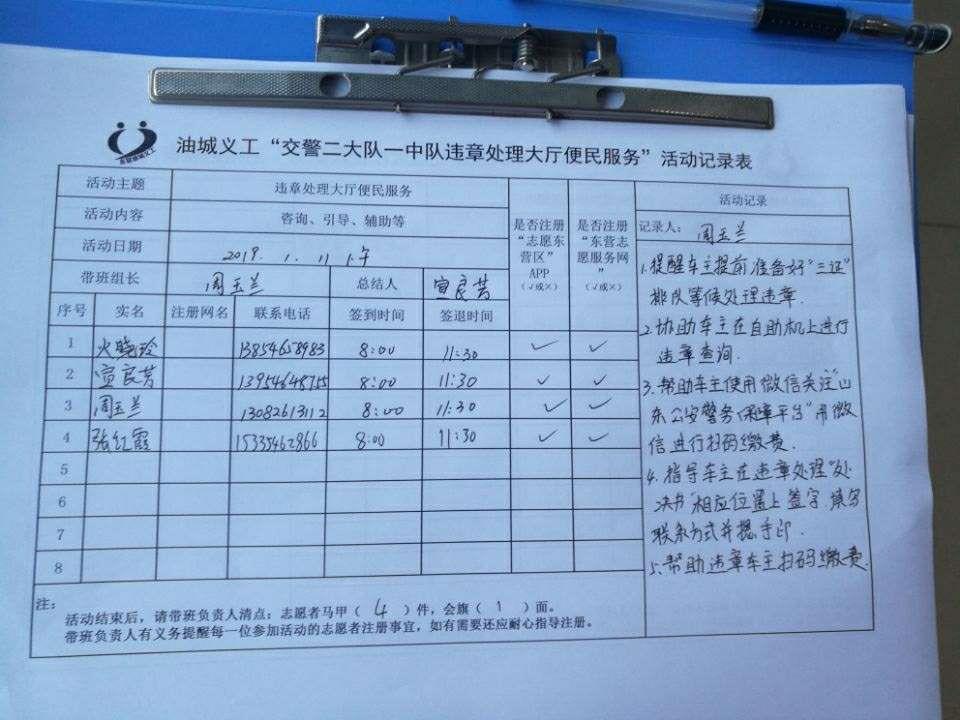 油城义工“交警二大队一中队违章处理大厅便民服务”活动记录表
活动主题 违章处理大厅便民服务
活动内容 咨询、引导、辅助等
活动日期 2019. 1. 11 上午
带班组长 周玉兰 总结人 宣良芳
是否注册“志愿东营区”APP（√或×）
是否注册“东营志愿服务网”（√或×）
序号 实名 注册网名 联系电话 签到时间 签退时间
1 火晓玲 13854658983 8:00 11:30 ✓ ✓
2 宣良芳 13954648755 8:00 11:30 ✓ ✓
3 周玉兰 13082613112 8:00 11:30 ✓ ✓
4 张红霞 15335462866 8:00 11:30 ✓ ✓
5
6
7
8
注：
活动结束后，请带班负责人清点：志愿者马甲（ 4 ）件，会旗（ 1 ）面。
带班负责人有义务提醒每一位参加活动的志愿者注册事宜，如有需要还应耐心指导注册。
活动记录
记录人：周玉兰
1.提醒车主提前准备好“三证”
排队等候处理违章.
2.协助车主在自助机上进行
违章查询.
3.帮助车主使用微信关注“山
东公安警务保障平台”用微
信进行扫码缴费.
4.指导车主在违章处理“处
决书”相应位置上签字.填写
联系方式并摁手印.
5.帮助违章车主扫码缴费